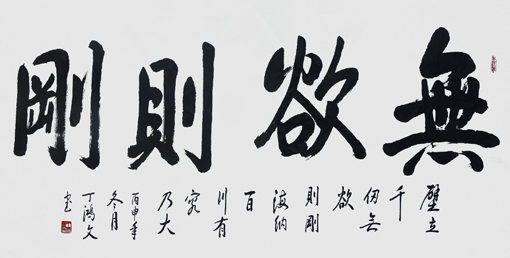 無欲則剛
壁立
千
仞无
欲
則剛
海納
百
川有
容
乃大
丙申年
冬月
丁鴻文
書